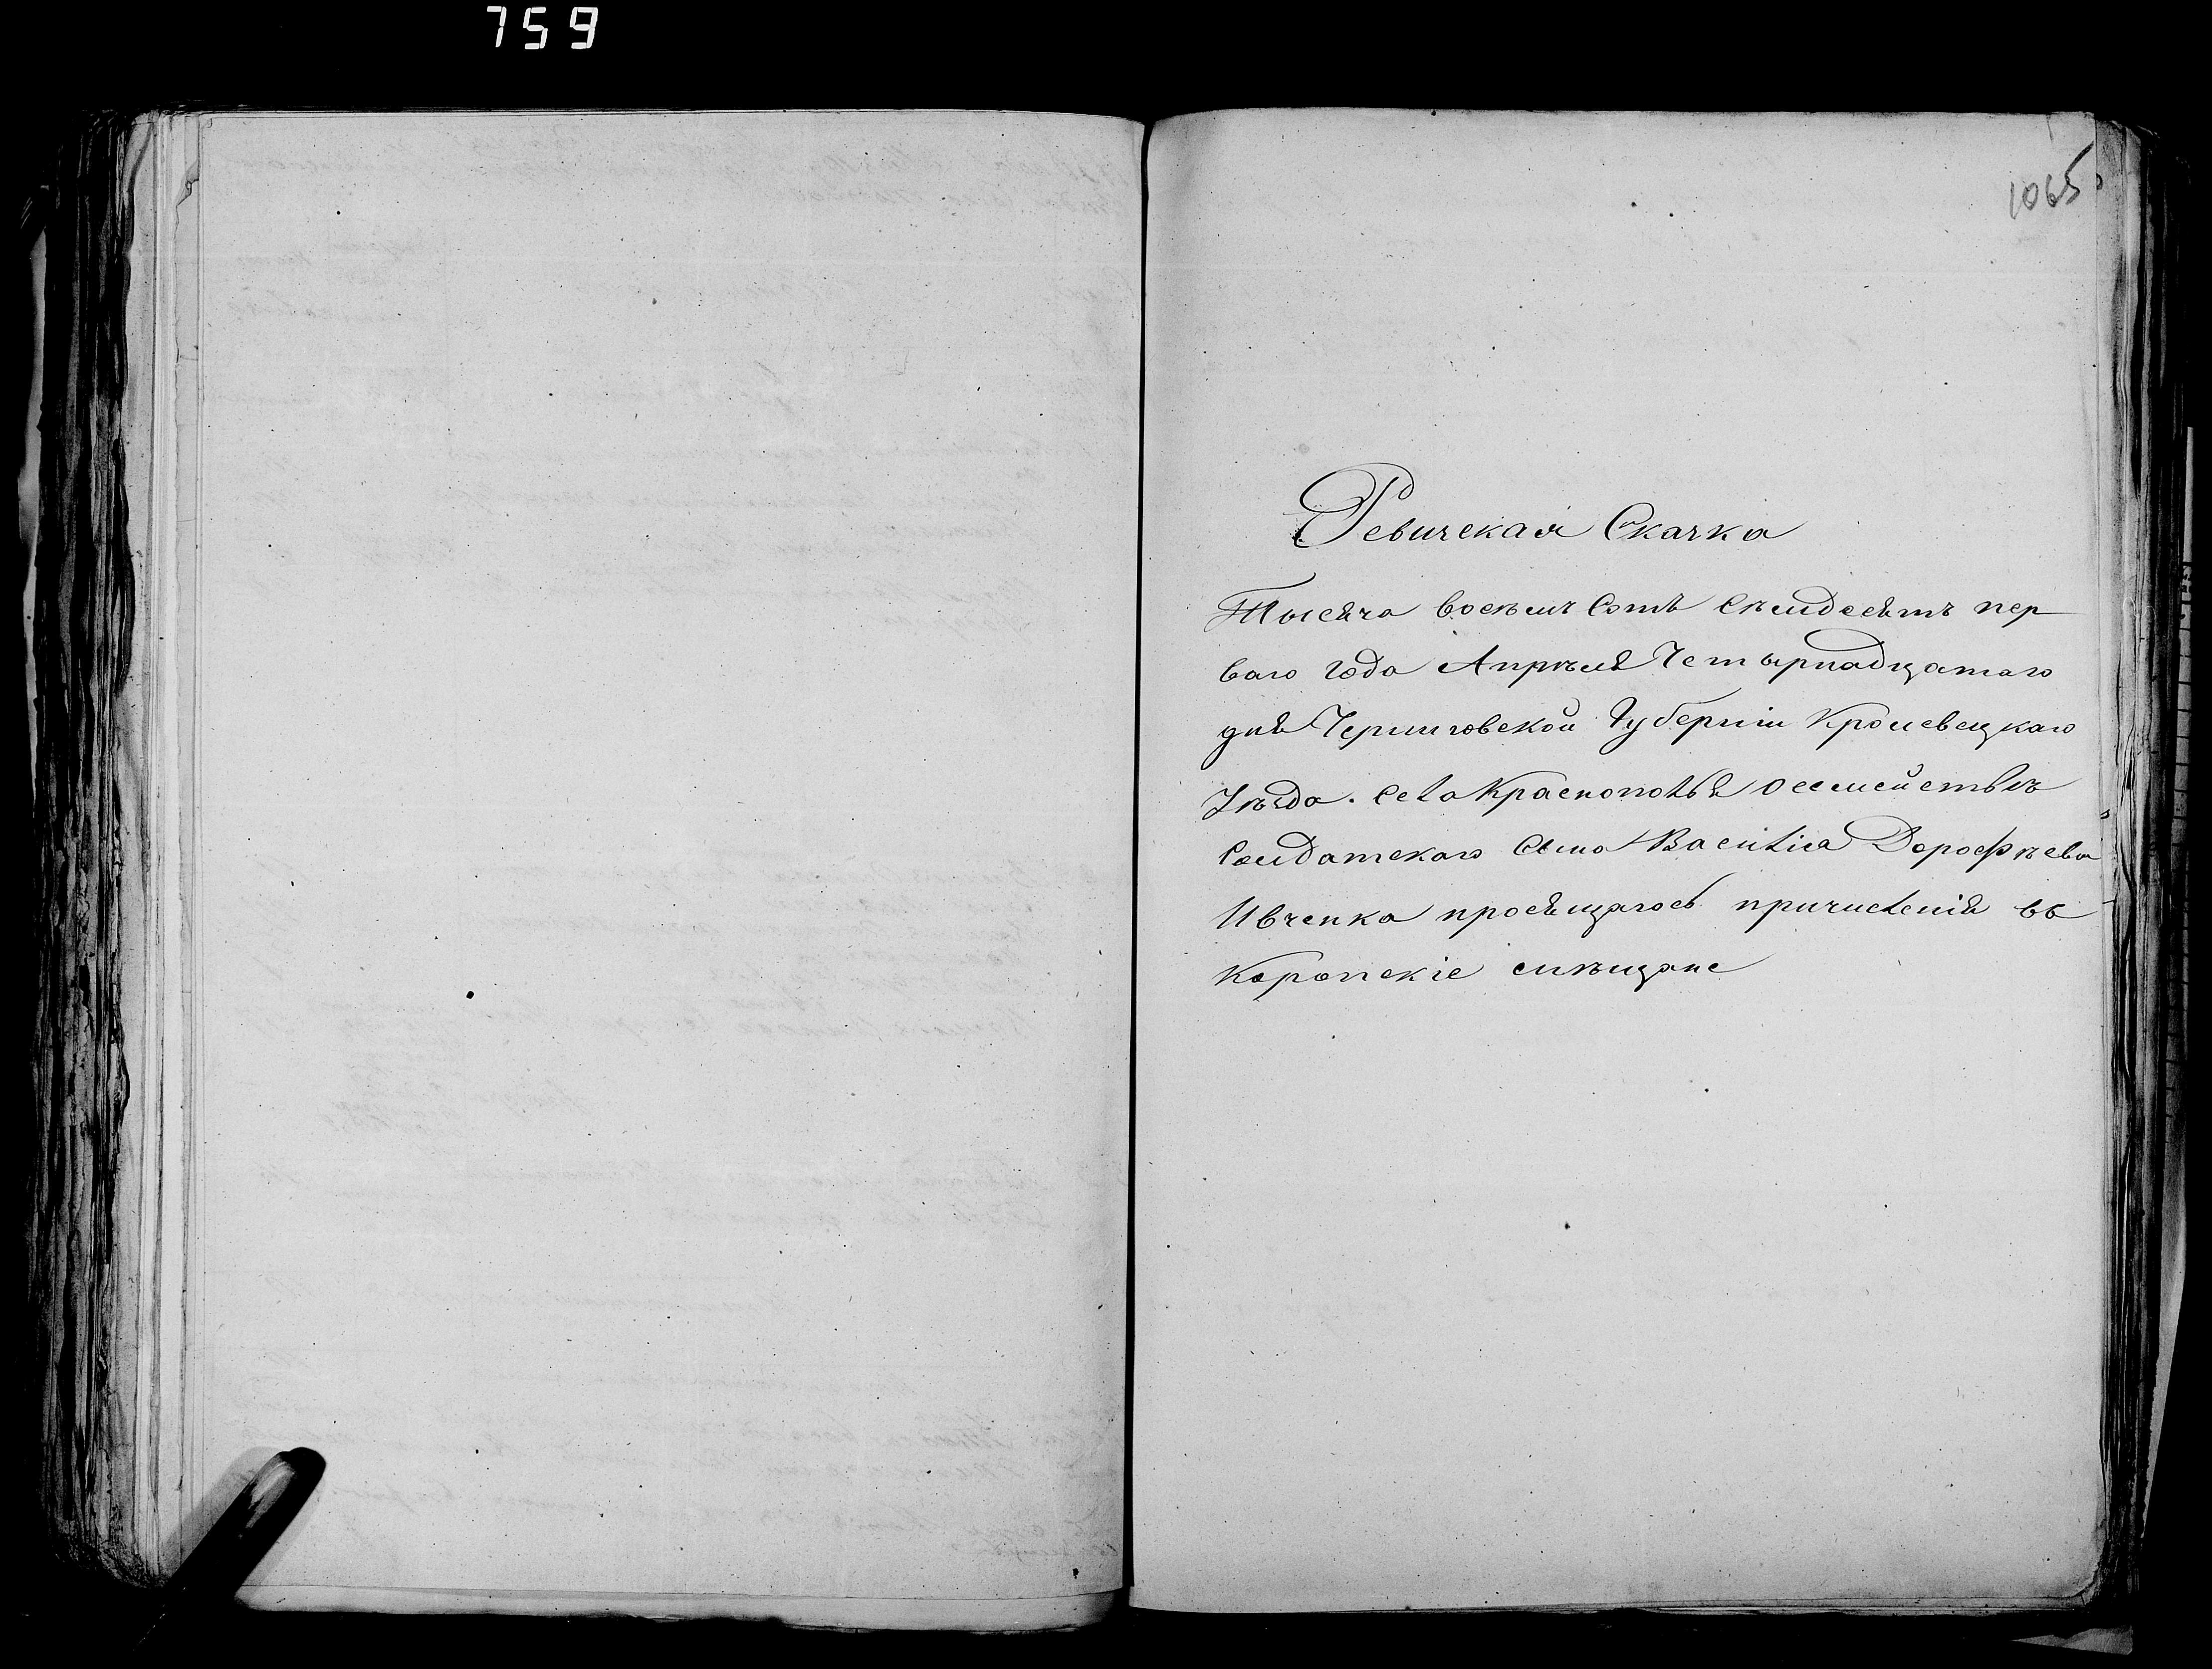 759
1065
Ревичская Скачка
Тысяча восѣмъ Сотъ Сѣмдесятъ пер
ваго года Апрѣля Четырнадцатаго
дня Черниговской Губерніи Кролевецкаго
Уѣзда. Села Краснополья о семействѣ
Солдатскаго Сына Василія Дорофѣева
Ивченка просящагось причисленія въ
Коропскіе мѣщане